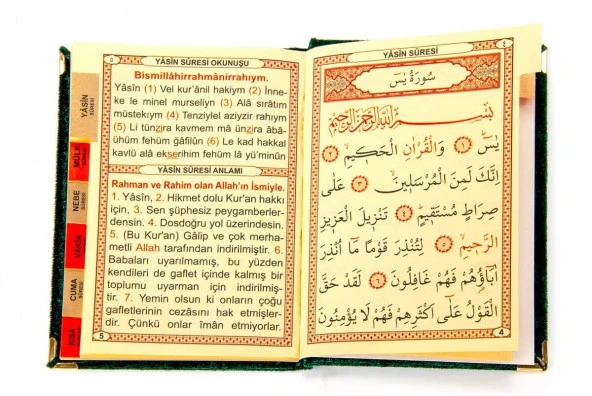 YÂSİN SÛRESİ OKUNUŞU
Bismillâhirrahmânirrahıym.
Yâsîn (1) Vel kur'ânil hakiym (2) İnne-
ke le minel murseliyn (3) Alâ sırâtım
müstekıym (4) Tenziylel aziyzir rahıym
(5) Li tünzira kavmem mâ ünzira âbâ-
ühüm fehüm gâfilûn (6) Le kad hakkal
kavlü alâ ekserihim fehüm lâ yü'minûn
YÂSİN SÛRESİ ANLAMI
Rahman ve Rahim olan Allah'ın İsmiyle.
1. Yâsîn, 2. Hikmet dolu Kur'an hakkı
için, 3. Sen şüphesiz peygamberler-
densin. 4. Dosdoğru yol üzerindesin.
5. (Bu Kur'an) Gâlip ve çok merha-
metli Allah tarafından indirilmiştir. 6.
Babaları uyarılmamış, bu yüzden
kendileri de gaflet içinde kalmış bir
toplumu uyarman için indirilmiş-
tir. 7. Yemin olsun ki onların çoğu
gafletlerinin cezâsını hak etmişler-
dir. Çünkü onlar îmân etmiyorlar.
5
YÂSİN SÛRESİ
MÜLK
NEBE SÛRESİ
VAKIA
CUMA SÛRESİ
KISA
YÂSİN SÛRESİ
٤
سُورَةُ يٰسٓ
بِسْمِ اللّٰهِ الرَّحْمٰنِ الرَّحِيمِ
يٰسٓ ﴿١﴾ وَالْقُرْاٰنِ الْحَكِيمِ ﴿٢﴾
اِنَّكَ لَمِنَ الْمُرْسَلِينَ ﴿٣﴾ عَلٰى
صِرَاطٍ مُسْتَقِيمٍ ﴿٤﴾ تَنْزِيلَ الْعَزِيزِ
الرَّحِيمِ ﴿٥﴾ لِتُنْذِرَ قَوْمًا مَٓا اُنْذِرَ
اٰبَٓاؤُهُمْ فَهُمْ غَافِلُونَ ﴿٦﴾ لَقَدْ حَقَّ
الْقَوْلُ عَلٰٓى اَكْثَرِهِمْ فَهُمْ لَا يُؤْمِنُونَ
4